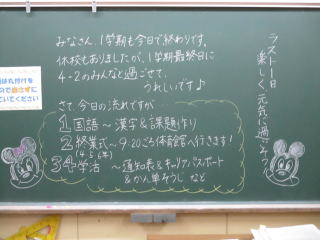 みなさん、1学期も今日で終わりです。
休校もありましたが、1学期最終日に
4-2のみんなと過ごせて、
うれしいです♪
さて、今日の流れですが…
1 国語〜漢字&課題作り
2 終業式〜9:20ごろ体育館へ行きます!
(4,5,6年)
3 4 学活〜通知表&キャリアパスポート
&かん単そうじ など
ラスト1日
楽しく、元気に過ごそう
は丸付けを
ので出さずに
ていてください